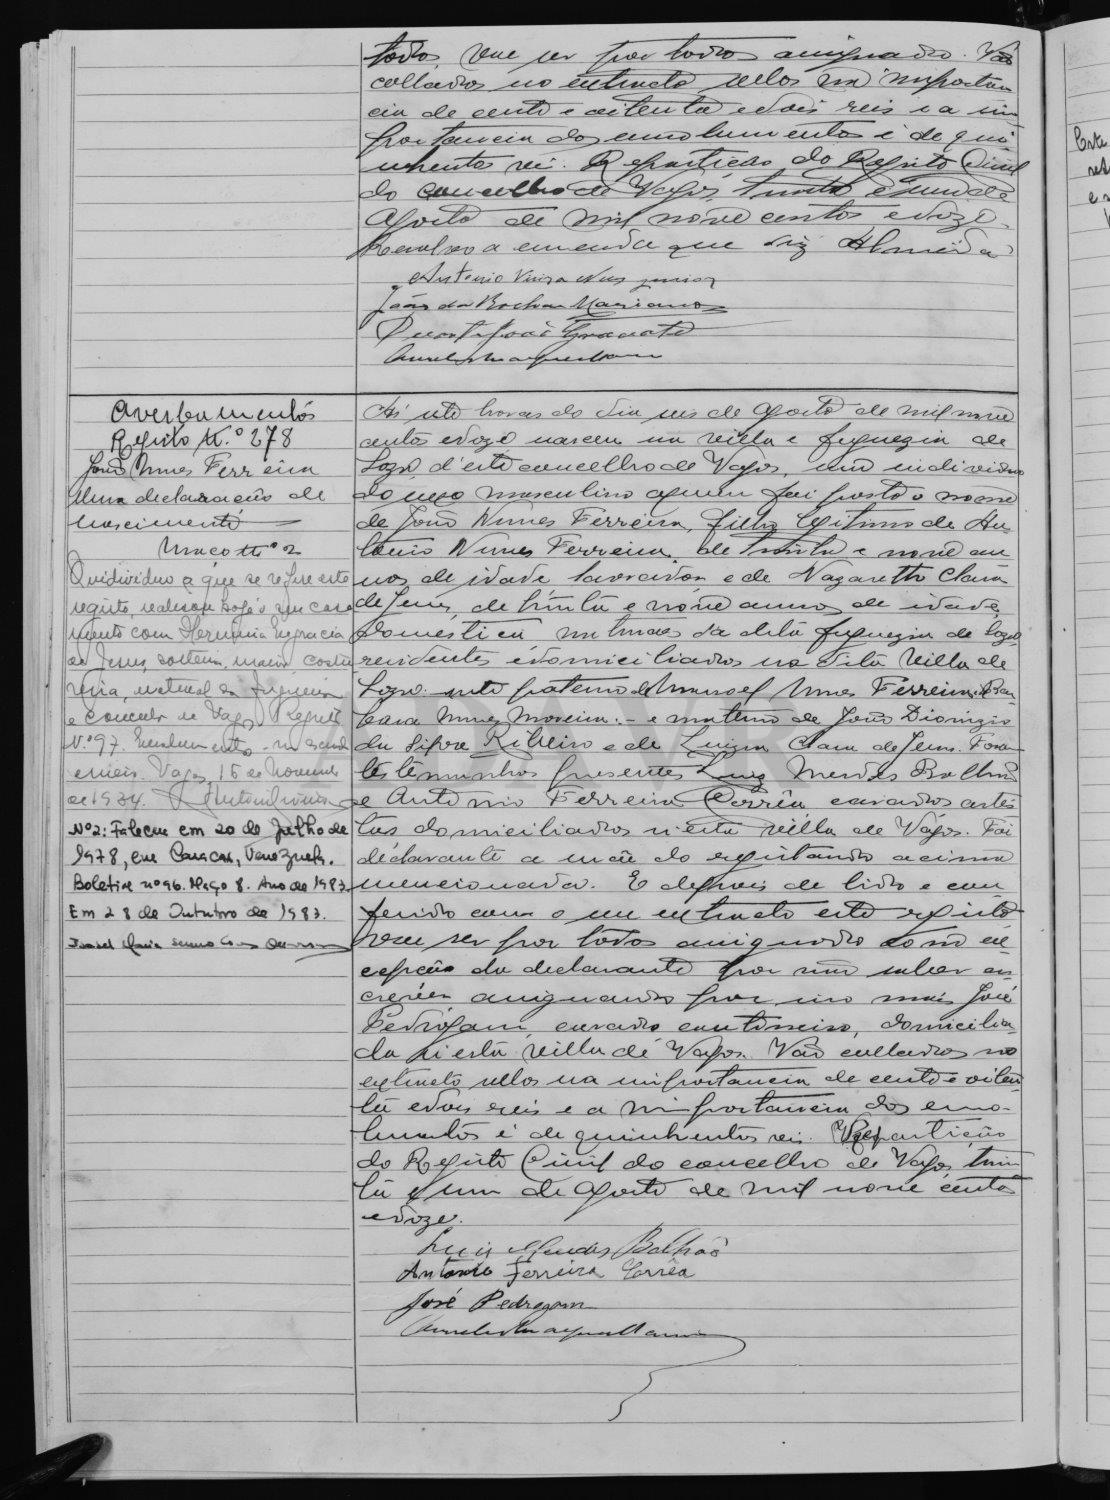 todos, vae ser por todos assignado. Vão
collados no extracto sellos na importan
cia de cento e oitenta e dois reis e a im
portancia dos emolumentos é de qui
nhentos reis. Repartição do Registo Civil
do concelho de Vagos, trinta e um de
Agosto de mil nove centos e doze.
Resalvo a emenda que diz Almeida
Antonio Vieira Nunes junior
João da Rocha Mariano
Duarte João Gravato
Averbamentos
Registo N.º 278
João Nunes Ferreira
Uma declaração de
nascimento
Maço n.º 2
O individuo a que se refere este
registo, realisou hoje o seu casa
mento com Herminia Engracia
de Jesus, solteira, maior, costu
reira, natural da freguesia
e concelho de Vagos. Registo
N.º 97. Emolumento
Vagos, 15 de Novembro
de 1934.
Nº 2: Faleceu em 20 de Julho de
1978, em Caracas, Venezuela.
Boletim nº 96. Maço 8. Ano de 1983.
Em 28 de Outubro de 1983.
Isabel Maria
Ás oito horas do dia seis de Agosto de mil nove
centos e doze nasceu na villa e freguezia de
Soza d'este concelho de Vagos, um individuo
do sexo masculino a quem foi posto o nome
de João Nunes Ferreira, filho legitimo de An
tonio Nunes Ferreira, de trinta e nove an
nos de idade, lavrador e de Nazareth Clara
de Jesus, de trinta e nove annos de idade,
domestica naturaes da dita freguezia de Soza,
residentes e domiciliados na dita villa de
Soza. neto paterno de Manoel Nunes Ferreira e Bar
bara Nunes Moreira: - e materno de João Dionizio
da Silva Ribeiro e de Luiza Clara de Jesus. Foram
testemunhas presentes Luiz Mendes Bolhão
e Antonio Ferreira Corrêa casados artis
tas domiciliados n'esta villa de Vagos. Foi
declarante a mãe do registando acima
mencionada. E depois de lido e con
ferido com o seu extracto este registo
vae ser por todos assignado com ex
cepção da declarante por não saber es
crever assignando por isso mais José
Pedrogam, casado, domicilia
do n'esta villa de Vagos. Vão collados no
extracto sellos na importancia de cento e oiten
ta e dois reis e a importancia dos emo-
lumentos é de quinhentos reis. Repartição
do Registo Civil do concelho de Vagos, trin
ta e um de Agosto de mil nove centos
e doze.
Luis Mendes Bolhão
Antonio Ferreira Corrêa
José Pedrogam
ADAVR
Este